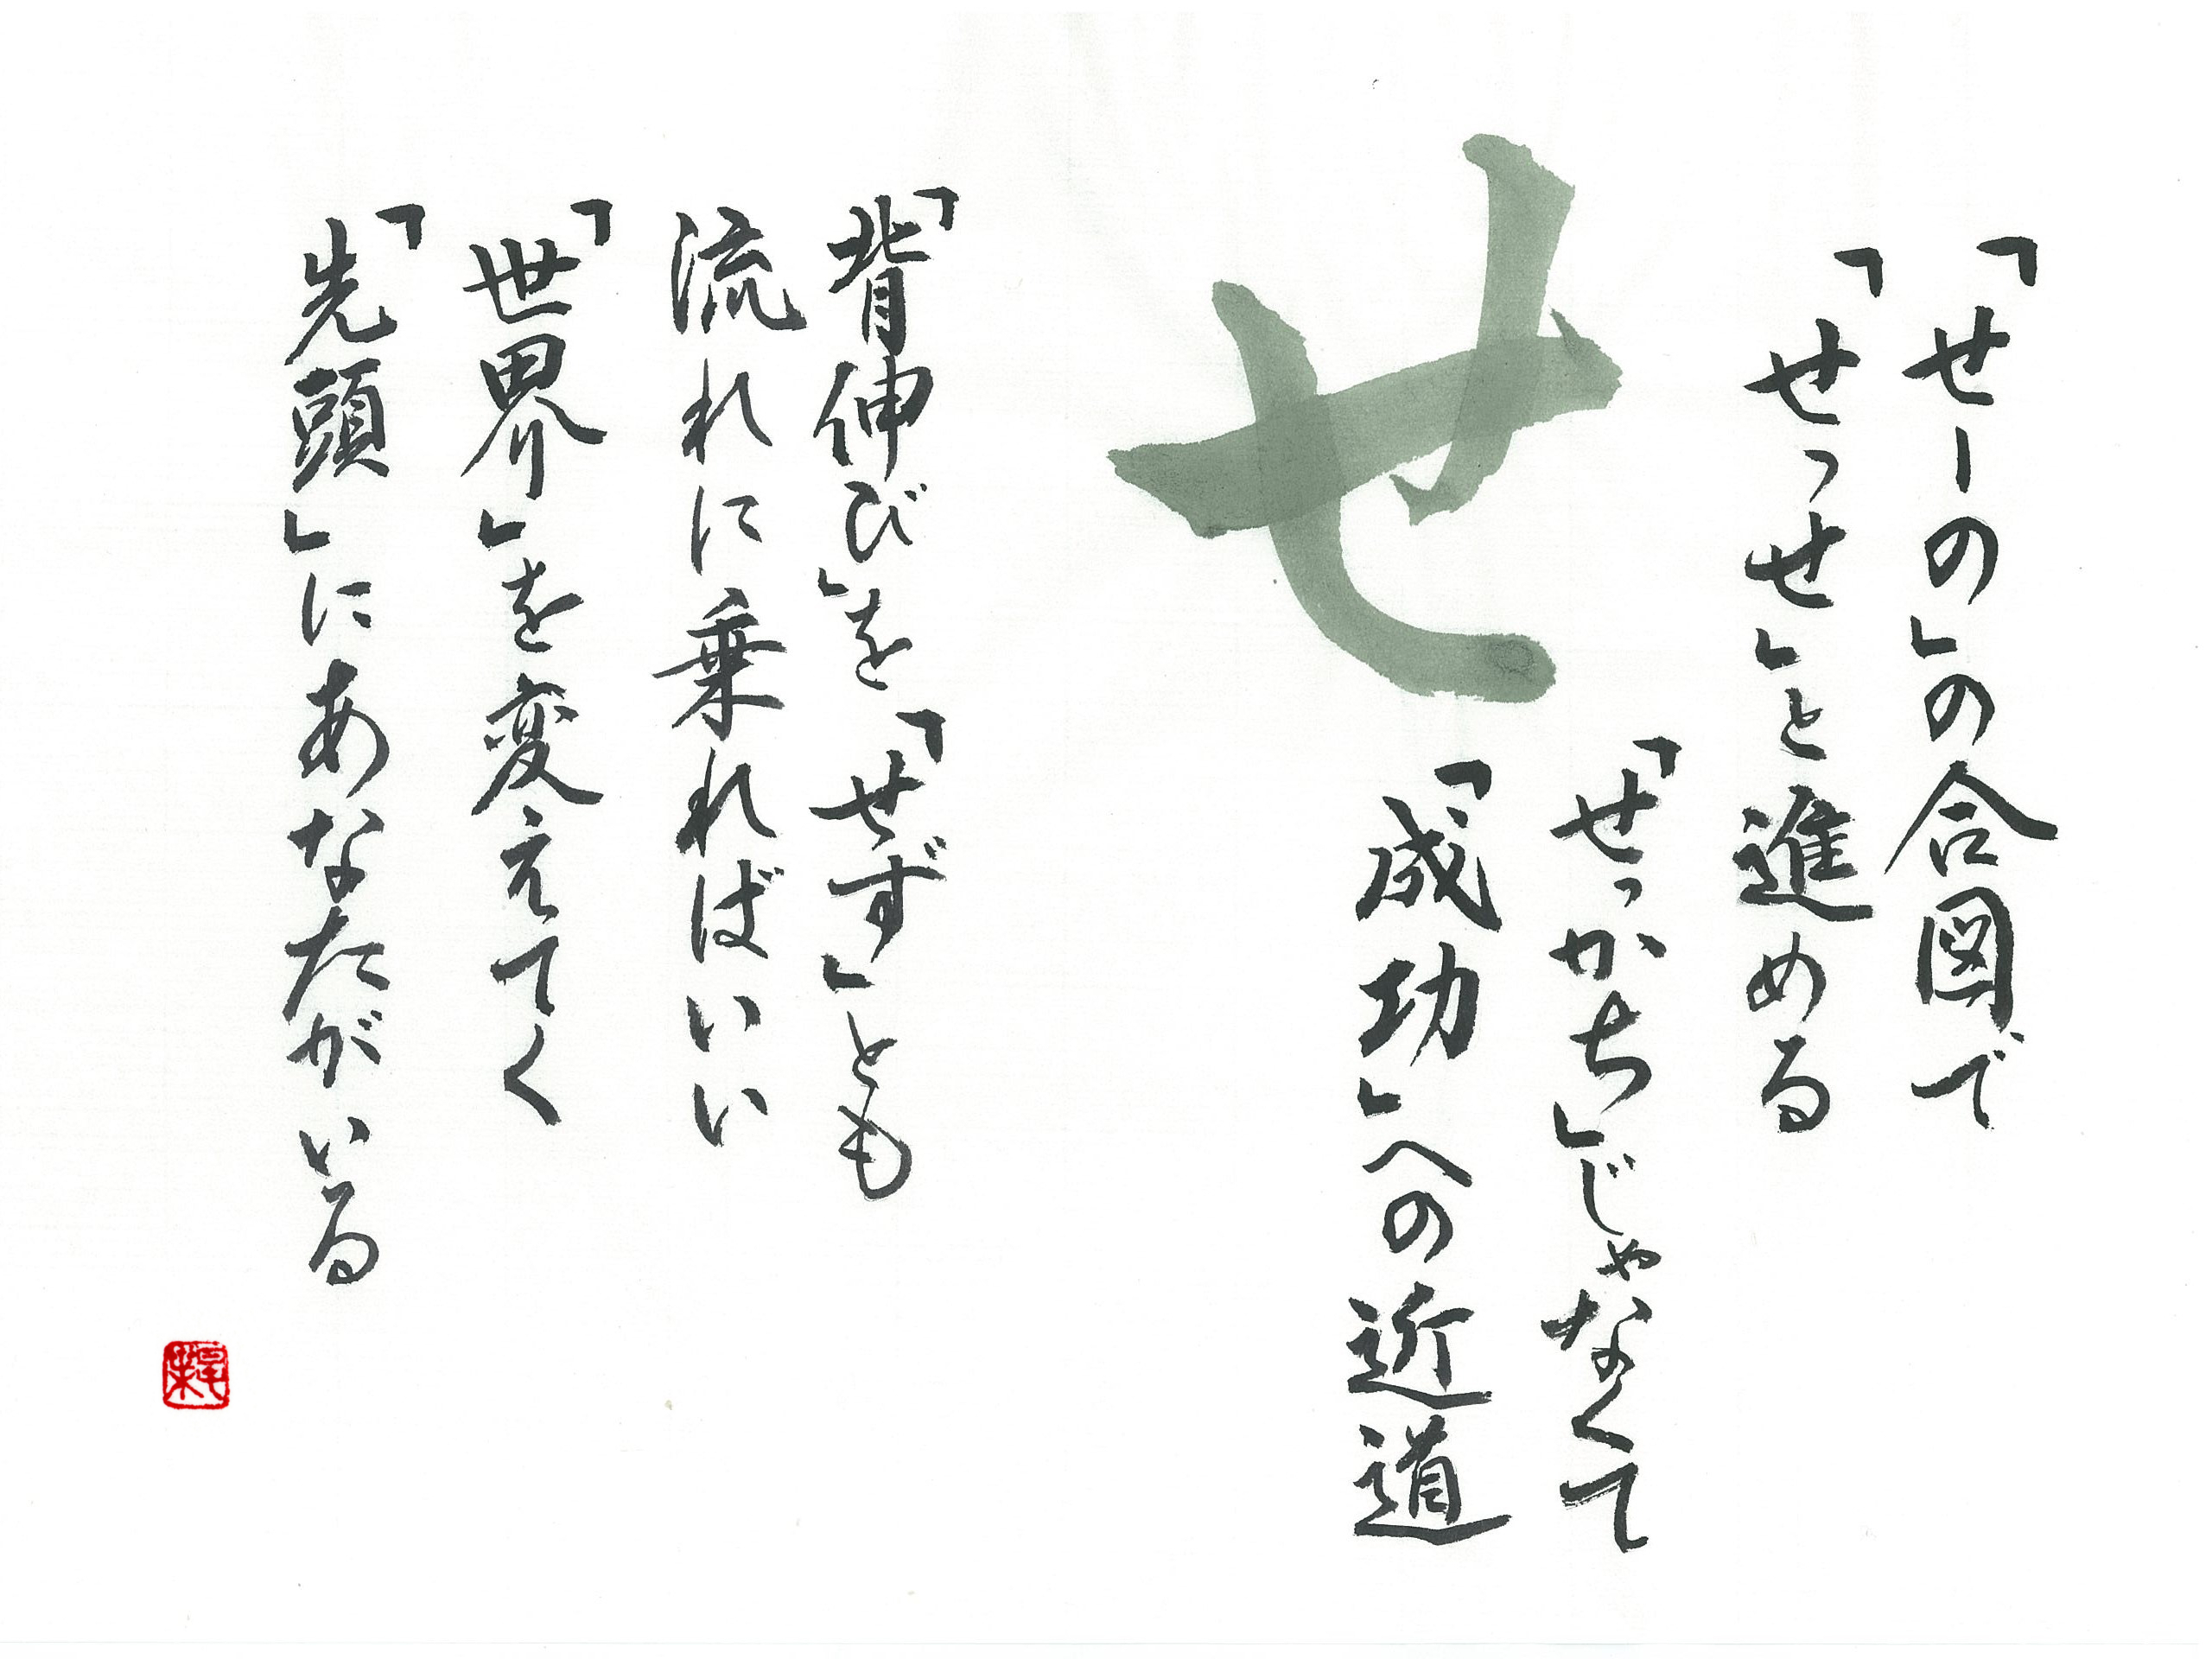 「せーの」の合図で
「せっせ」と進める
せ
「せっかち」じゃなくて
「成功」への近道
「背伸び」を「せず」とも
流れに乗ればいい
「世界」を変えてく
「先頭」にあなたがいる